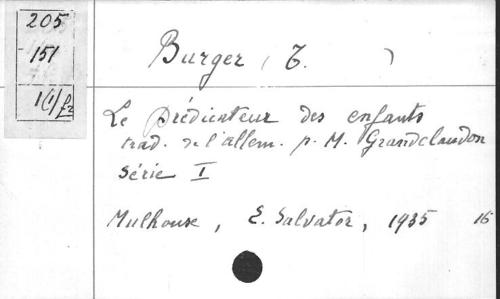 205
151
1(1)f2
Burger ( T. )
Le prédicateur des enfants
trad. de l'allem. p. M. Grandclaudon
Série I
Mulhouse, E. Salvator, 1935 16